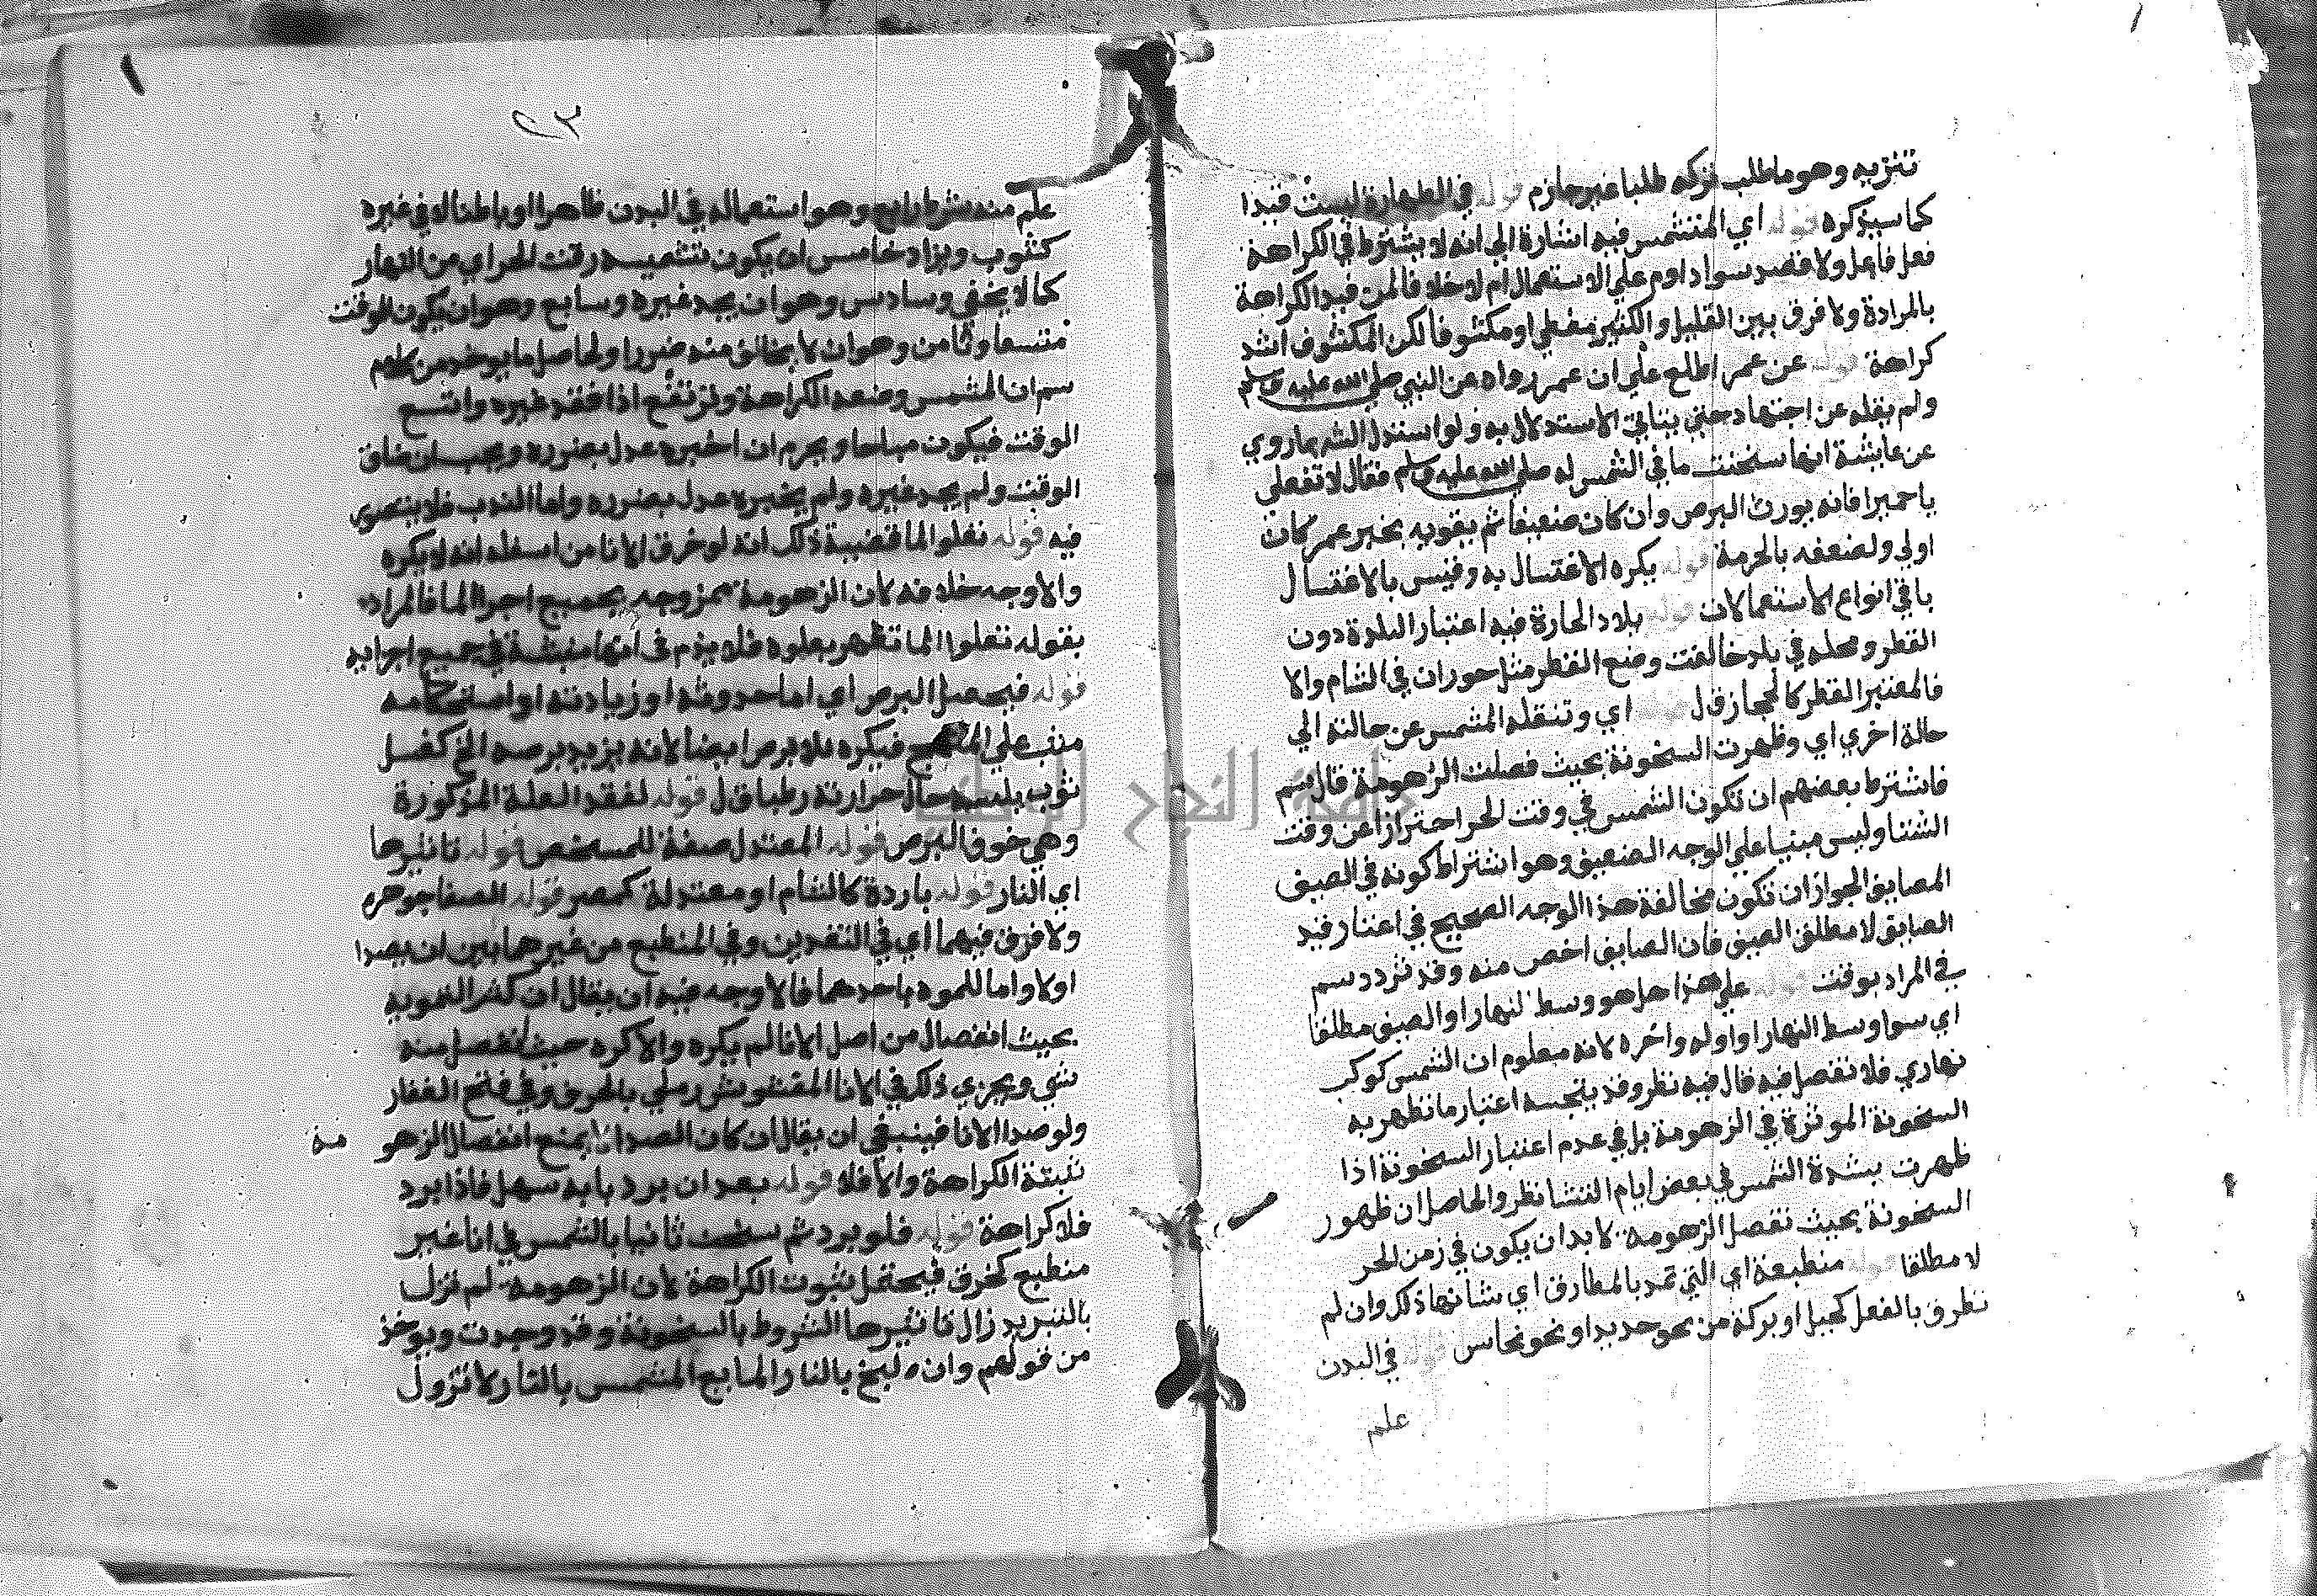 تنزيه وهو ما طلب تركه طلبا غير جازم قوله في الطهارة ليست قيدا
كما سيذكره قوله اي المتشمس فيه اشارة الي انه لا يشترط في الكراهة
فعل فاعل ولا قصد سوا داوم علي الاستعمال ام لا خلافا لمن قيد الكراهة
بالمرادة ولا فرق بين القليل والكثير مغطي او مكشوفا لكن المكشوف اشد
كراهة قوله عن عمر اطلع علي ان عمر رواه عن النبي صلي الله عليه وسلم
ولم يقله عن اجتهاد حتي ينافي الاستدلال به ولو استدل الشه بماروي
عن عايشة انها سخنت ما في الشمس له صلي الله عليه وسلم فقال لا تفعلي
يا حميرا فانه يورث البرص وان كان ضعيفا ثم يقويه بخبر عمر كان
اولي ولضعفه بالحرمة قوله يكره الاغتسال به وقيس بالاغتسال
باقي انواع الاستعمالات قوله بلاد الحارة فيه اعتبار البلدة دون
القطر ومحله في بلد خالفت وضع القطر مثل حوران في الشام والا
فالمعتبر القطر كالحجاز ق ل قوله اي وتنقله المشمس عن حالته الي
حالة اخري اي وظهرت السخونة بحيث فصلت الزهومة قال سم
فاشترط بعضهم ان تكون الشمس في وقت الحر احترازا عن وقت
الشتا وليس مبنيا علي الوجه الضعيف وهو اشتراط كونه في الصيف
المصايق الجواز ان تكون مخالفة هذا الوجه الصحيح في اعتبار قيد
الصايق لا مطلق الصيف فان الصايق اخص منه وقد تردد سم
في المراد بوقت قوله علي هذا هل هو وسط النهار او الصيف مطلقا
اي سوا وسط النهار او اوله واخره لانه معلوم ان الشمس كوكب
نهاري فلا تفصل فيه قال فيه نظر وقد يتجسه اعتبار ما تظهر به
السخونة الموثرة في الزهومة بل في عدم اعتبار السخونة اذا
ظهرت بشدة الشمس في بعض ايام الشتا نظر والحاصل ان ظهور
السخونة بحيث تفصل الزهومة لا بد ان يكون في زمن الحر
لا مطلقا قوله منطبعة اي التي تمد بالمطارق اي شانها ذلك وان لم
تطرق بالفعل كجبل او بركة من نحو حديد او نحو نحاس قوله في البدن
علم
علم منه شرط رابع وهو استعماله في البدن ظاهرا او باطنا لا في غيره
كثوب ويزاد خامس ان يكون تشميسه وقت الحر اي من النهار
كما لا يخفي وسادس وهو ان يجد غيره وسابع وهو ان يكون الوقت
متسعا وثامن وهو ان لا يخاف منه ضررا ولحاصل ما يوخذ من كلام
سم ان المشمس وضعه الكراهة وترتفع اذا فقد غيره واتسع
الوقت فيكون مباحا ويحرم ان اخبره عدل بضرره ويجب ان ضاق
الوقت ولم يجد غيره ولم يخبره عدل بضرره واما الندب فلا يتصور
فيه قوله تعلوا الما قضية ذلك انه لو خرق الانا من اسفله انه لا يكره
والاوجه خلافه لان الزهومة ممزوجه بجميع اجزا الما فالمراد
بقوله تعلوا الما تظهر بعلوه فلا يلزم في انها منبثة في جميع اجزايه
قوله فيحصل البرص اي اما حدوثه او زيادته او استحكامه
منثب علي المنهج فيكره للابرص ايضا لانه يزيد برصه الخ كغسل
ثوب يلبسه حال حرارته رطبا ق ل قوله لفقد العلة المذكورة
وهي خوف البرص قوله المعتدل صفة للمسخص قوله تاثيرها
اي النار قوله باردة كالشام او معتدلة كمصر قوله الصفا جوهره
ولا فرق فيهما اي في النقدين وفي المنطبع من غيرهما بين ان يصدا
اولا واما المموه باحدهما فالاوجه فيه ان يقال ان كثر التمويه
بحيث انفصال من اصل الانا لم يكره والا كره حيث انفصل منه
شي ويجري ذلك في الانا المغشوش رملي بالحرف وفي فتح الغفار
ولو صدا الانا فينبغي ان يقال ان كان الصدا لا يمنع انفصال الزهو مة
تثبتة الكراهة والا فلا قوله بعد ان برد بابه سهل فاذا برد
فلا كراهة قوله فلو برد ثم سخت ثانيا بالشمس في انا غير
منطبع كخزف فيحتمل ثبوت الكراهة لان الزهومة لم تزل
بالتبريد زال تاثيرها الشروط بالسخونة وقد وجدت ويوخذ
من قولهم وان طبخ بالنار المايع المشمس بالنار لا تزول